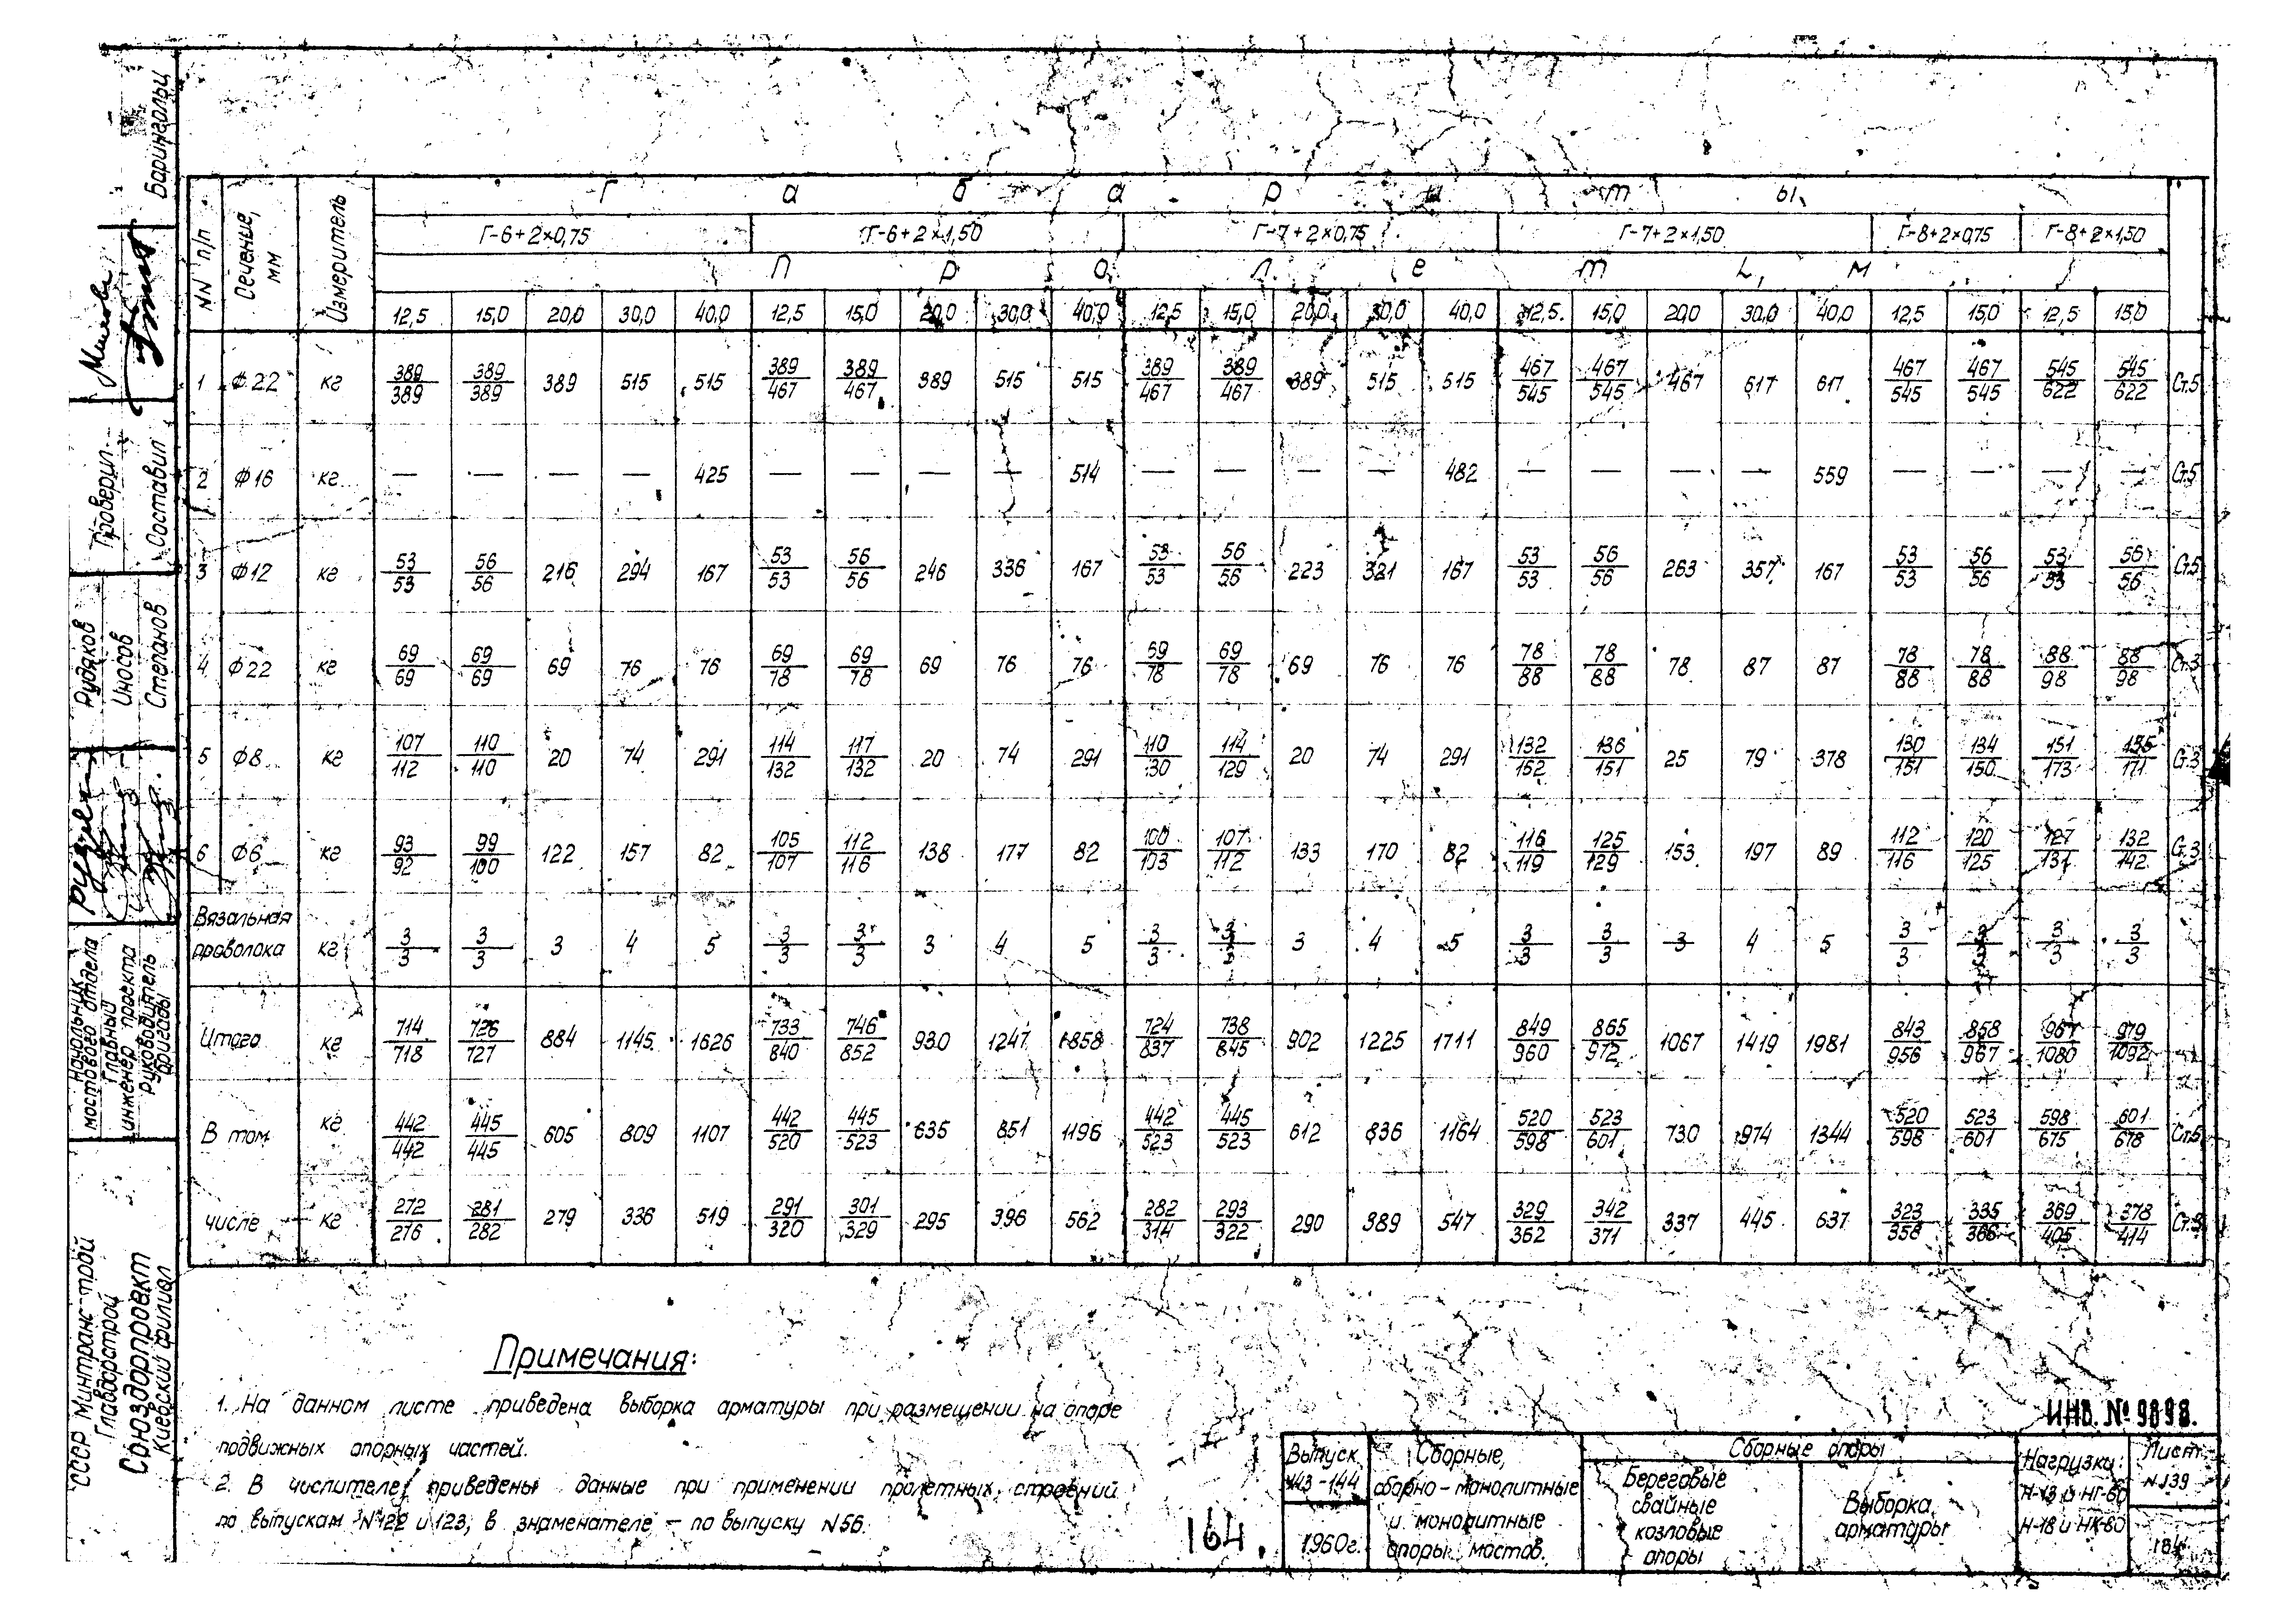 Габариты
NN п/п Сечение, мм Измеритель Г-6+2×0,75 Г-6+2×1,50 Г-7+2×0,75 Г-7+2×1,50 Г-8+2×0,75 Г-8+2×1,50
Пролет L, м
12,5 15,0 20,0 30,0 40,0 12,5 15,0 20,0 30,0 40,0 12,5 15,0 20,0 30,0 40,0 12,5 15,0 20,0 30,0 40,0 12,5 15,0 12,5 15,0
1 Ф22 кг 389/389 389/389 389 515 515 389/467 389/467 389 515 515 389/467 389/467 389 515 515 467/545 467/545 467 617 617 467/545 467/545 545/622 545/622 Ст.5
2 Ф16 кг — — — — 425 — — — — 514 — — — — 482 — — — — 559 — — — — Ст.5
3 Ф12 кг 53/53 56/56 216 294 167 53/53 56/56 246 336 167 53/53 56/56 223 321 167 53/53 56/56 263 357 167 53/53 56/56 53/53 56/56 Ст.5
4 Ф22 кг 69/69 69/69 69 76 76 69/78 69/78 69 76 76 69/78 69/78 69 76 76 78/88 78/88 78 87 87 78/88 78/88 88/98 88/98 Ст.3
5 Ф8 кг 107/112 110/110 20 74 291 114/132 117/132 20 74 291 110/130 114/129 20 74 291 132/152 136/151 25 79 378 130/151 134/150 151/173 155/171 Ст.3
6 Ф6 кг 93/92 99/100 122 157 82 105/107 112/116 138 177 82 100/103 107/112 133 170 82 116/119 125/129 153 197 89 112/116 120/125 127/131 132/142 Ст.3
Вязальная
проволока кг 3/3 3/3 3 4 5 3/3 3/3 3 4 5 3/3 3/3 3 4 5 3/3 3/3 3 4 5 3/3 3/3 3/3 3/3
Итого кг 714/718 726/727 884 1145 1626 733/840 746/852 930 1247 1858 724/837 738/845 902 1225 1711 849/960 865/972 1067 1419 1981 843/956 858/967 967/1080 979/1092
В том кг 442/442 445/445 605 809 1107 442/520 445/523 635 851 1196 442/523 445/523 612 836 1164 520/598 523/601 730 974 1344 520/598 523/601 598/675 601/678 Ст.5
числе кг 272/276 281/282 279 336 519 291/320 301/329 295 396 562 282/314 293/322 290 389 547 329/362 342/371 337 445 637 323/358 335/366 369/405 378/414 Ст.3
Примечания:
1. На данном листе приведена выборка арматуры при размещении на опоре
подвижных опорных частей.
2. В числителе приведены данные при применении пролетных строений
по выпускам №122 и 123, в знаменателе — по выпуску N56.
164.
ИНВ. № 9898.
Выпуск
143-144
1960г.
Сборные,
сборно-монолитные
и монолитные
опоры мостов.
Сборные опоры
Береговые
свайные
козловые
опоры
Выборка
арматуры
Нагрузки:
Н-13 и НГ-60
Н-18 и НК-80
Лист
N139
164
Барингольц
Проверил
Составил
Рудаков
Иносов
Степанов
Начальник
мостового отдела
Главный
инженер проекта
Руководитель
бригады
СССР Минтрансстрой
Главдорстрой
Союздорпроект
Киевский филиал